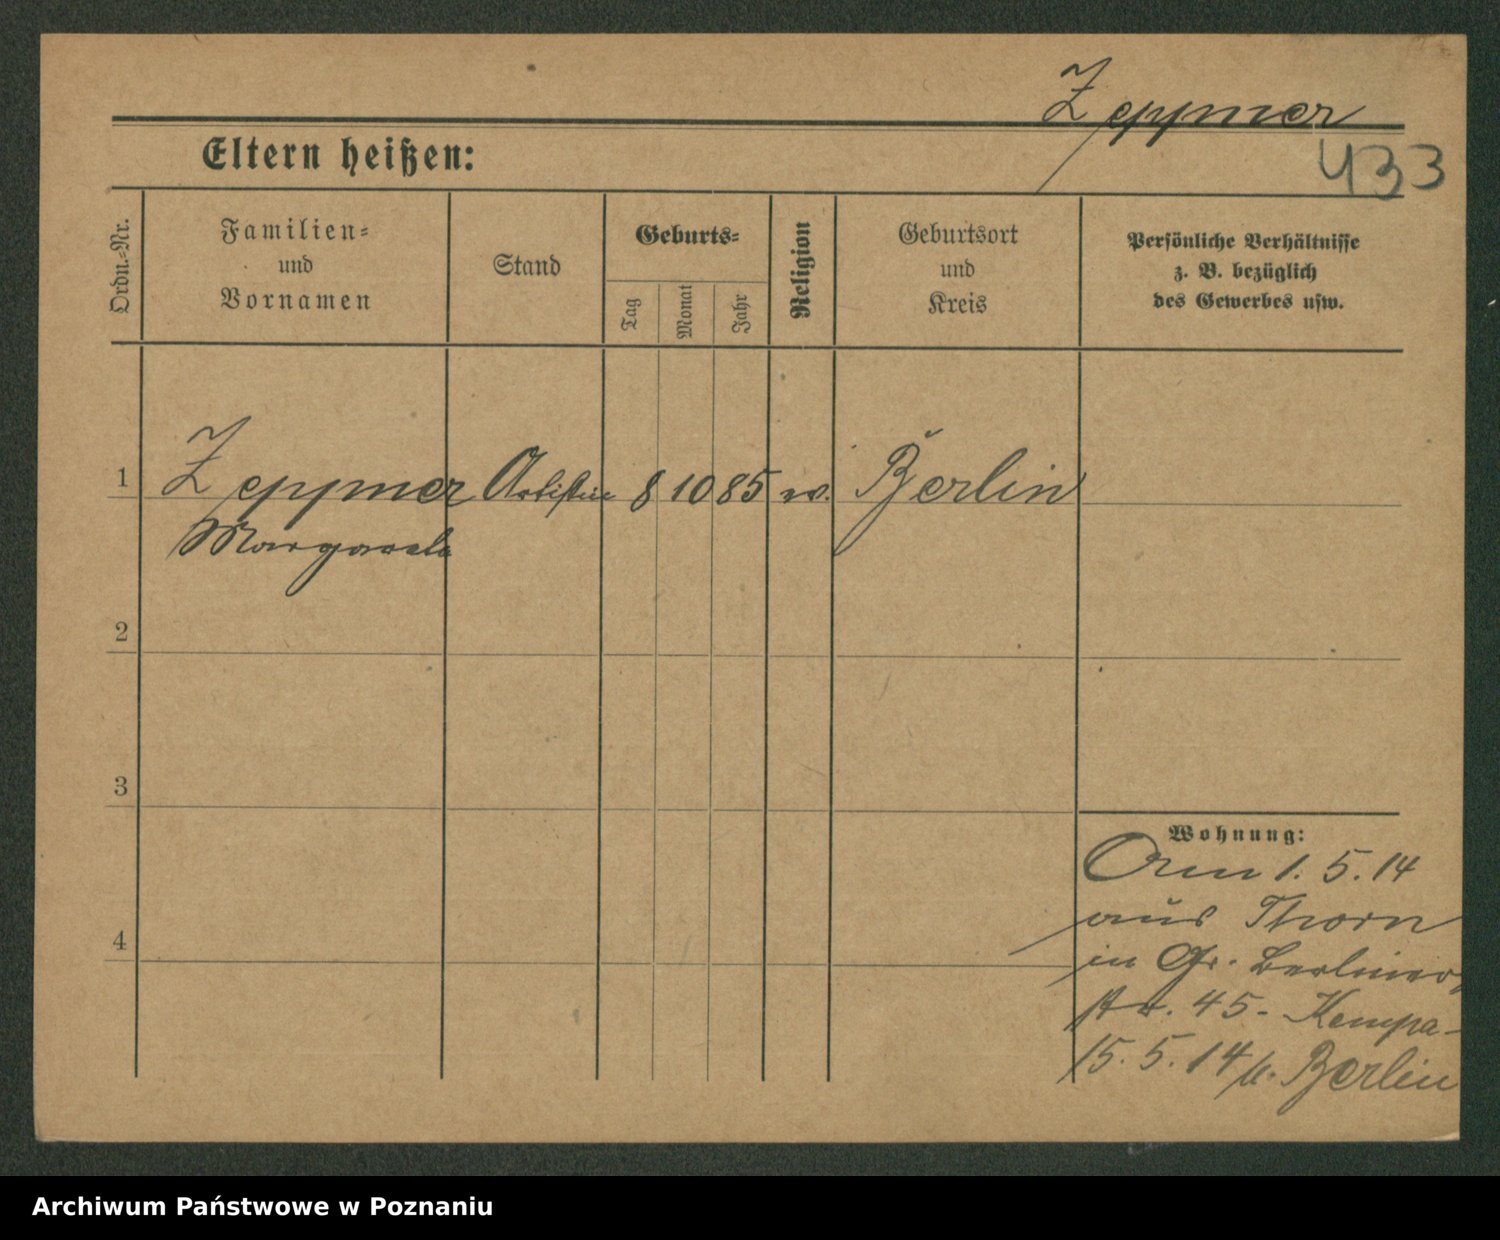 Zeppmer
433
Eltern heißen:
Ordn.-Nr.
Familien-
und
Vornamen
Stand
Geburts-
Tag
Monat
Jahr
Religion
Geburtsort
und
Kreis
Persönliche Verhältnisse
z. B. bezüglich
des Gewerbes usw.
1 Zeppmer Artistin 8 10 85 ev. Berlin
Margarete
2
3
4
Wohnung:
1. 5. 14
aus Thorn
in Gr. Berliner
str. 45. Kempa
15. 5. 14 n. Berlin
Archiwum Państwowe w Poznaniu